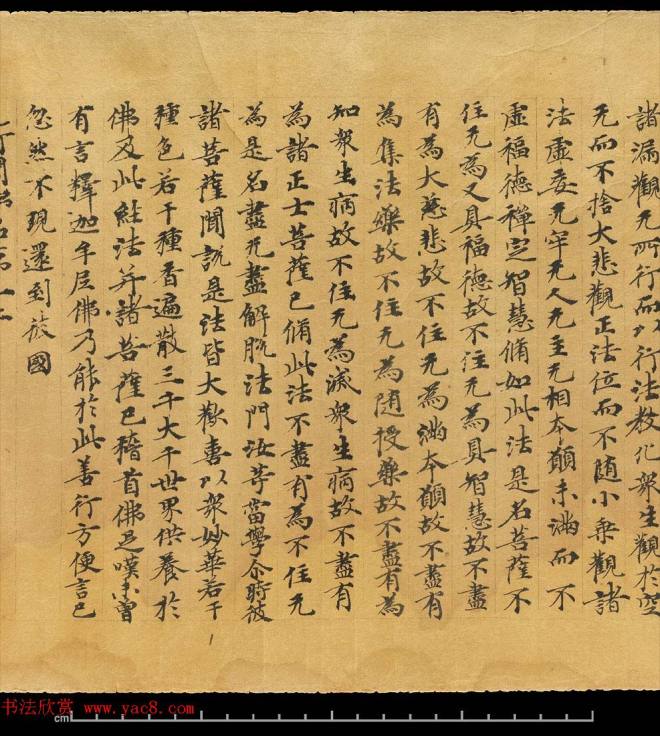 諸漏觀无所行而以行法教化衆生觀於空
无而不捨大悲觀正法位而不随小乘觀諸
法虛妄无牢无人无主无相本願未滿而不
虛福德禪定智慧脩如此法是名菩薩不
住无為又具福德故不住无為具智慧故不盡
有為大慈悲故不住无為滿本願故不盡有
為集法藥故不住无為随授藥故不盡有為
知衆生病故不住无為滅衆生病故不盡有
為諸正士菩薩已脩此法不盡有為不住无
為是名盡无盡解脫法門汝等當學尒時彼
諸菩薩聞說是法皆大歡喜以衆妙華若干
種色若干種香遍散三千大千世界供養於
佛及此經法并諸菩薩已稽首佛足嘆未曾
有言釋迦牟尼佛乃能於此善行方便言已
忽然不現還到彼國
书法欣赏 www.yac8.com
cm